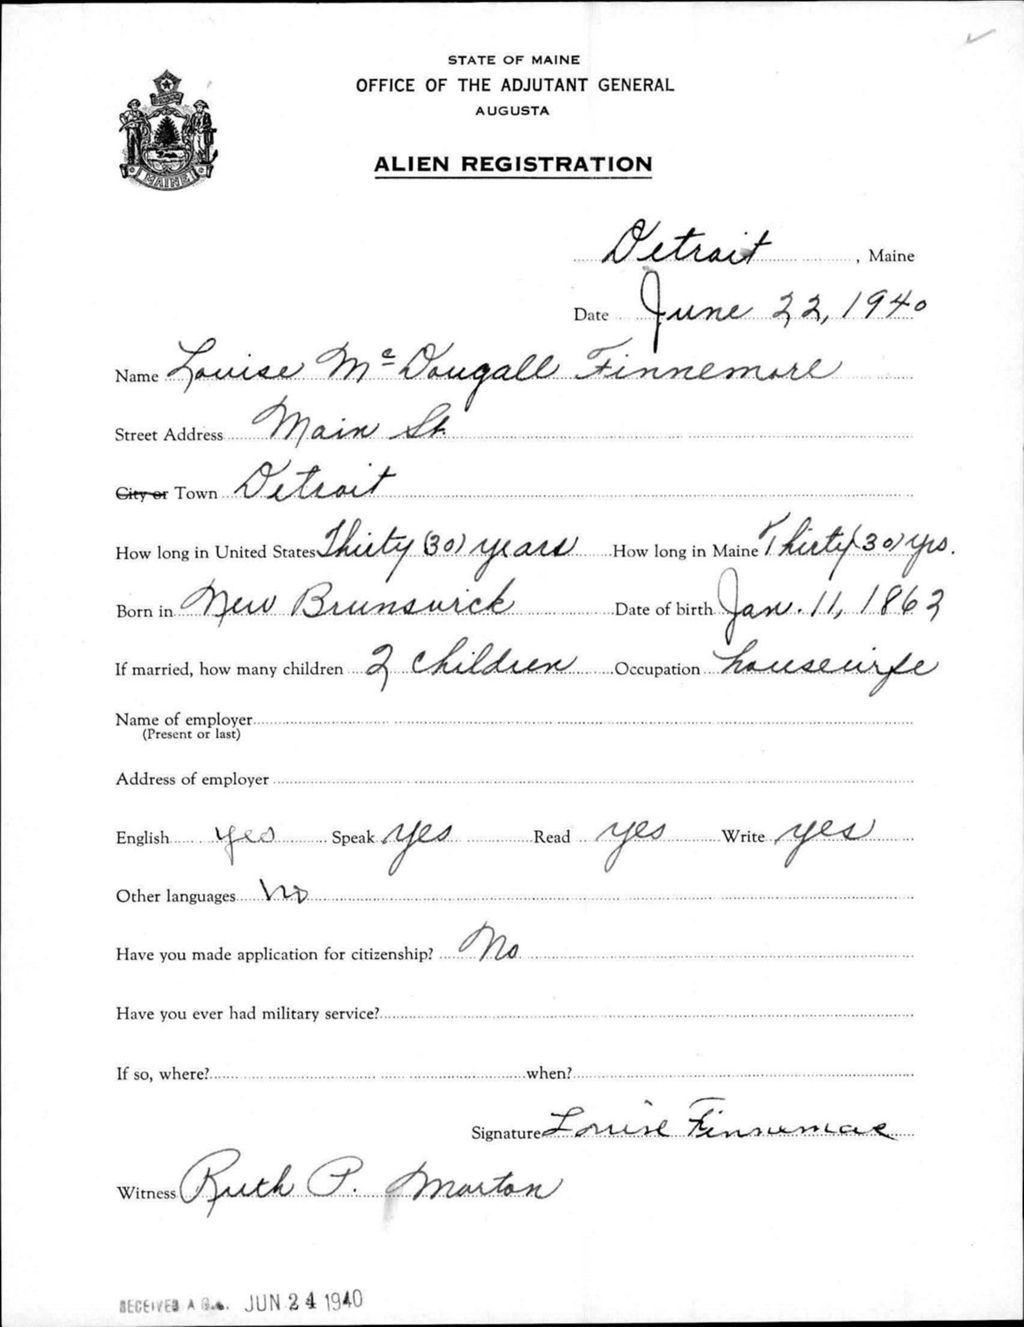 STATE OF MAINE
OFFICE OF THE ADJUTANT GENERAL
AUGUSTA
MAINE
ALIEN REGISTRATION
Detroit, Maine
Date June 22, 1940
Name Louise Mc Dougall Finnemore
Street Address Main St.
City or Town Detroit
How long in United States Thirty (30) years How long in Maine Thirty (30) yrs.
Born in New Brunswick Date of birth Jan. 11, 1862
If married, how many children 2 children Occupation housewife
Name of employer
(Present or last)
Address of employer
English yes Speak yes Read yes Write yes
Other languages no
Have you made application for citizenship? No
Have you ever had military service?
If so, where? when?
Signature Louise Finnemore
Witness Ruth P. Morton
RECEIVED A. G. JUN 24 1940